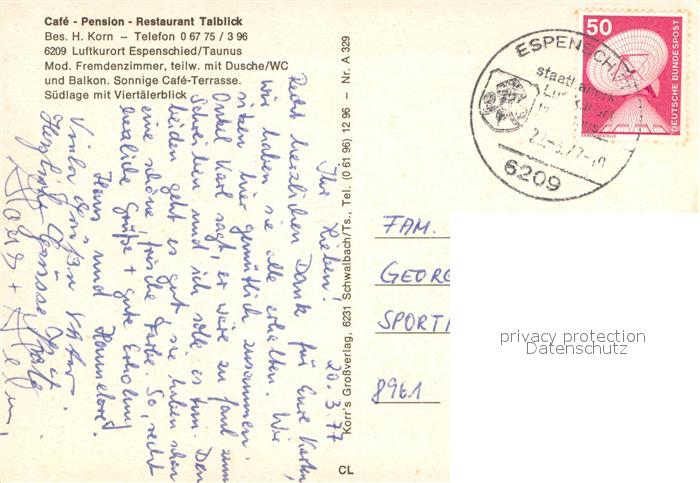 Café - Pension - Restaurant Talblick
Bes. H. Korn – Telefon 0 67 75 / 3 96
6209 Luftkurort Espenschied/Taunus
Mod. Fremdenzimmer, teilw. mit Dusche/WC
und Balkon. Sonnige Café-Terrasse.
Südlage mit Viertälerblick
20.3.77
Ihr Lieben!
Recht herzlichen Dank für Eure Karten,
wir haben sie alle erhalten. Wir
sitzen hier gemütlich zusammen.
Onkel Karl sagt, er wäre zu faul zum
Schreiben und ich solle es tun. Den
beiden geht es gut, sie haben schon
eine schöne, frische Farbe. So, recht
herzliche Grüße + gute Erholung
Hans und Hannelore
Vielen
Herzliche Grüsse
Korr's Großverlag, 6231 Schwalbach/Ts., Tel. (0 61 96) 12 96 – Nr. A 329
CL
50
DEUTSCHE BUNDESPOST
ESPENSCHIED
staatl. anerk.
6209
FAM.
GEORG
SPORT
8961
privacy protection
Datenschutz